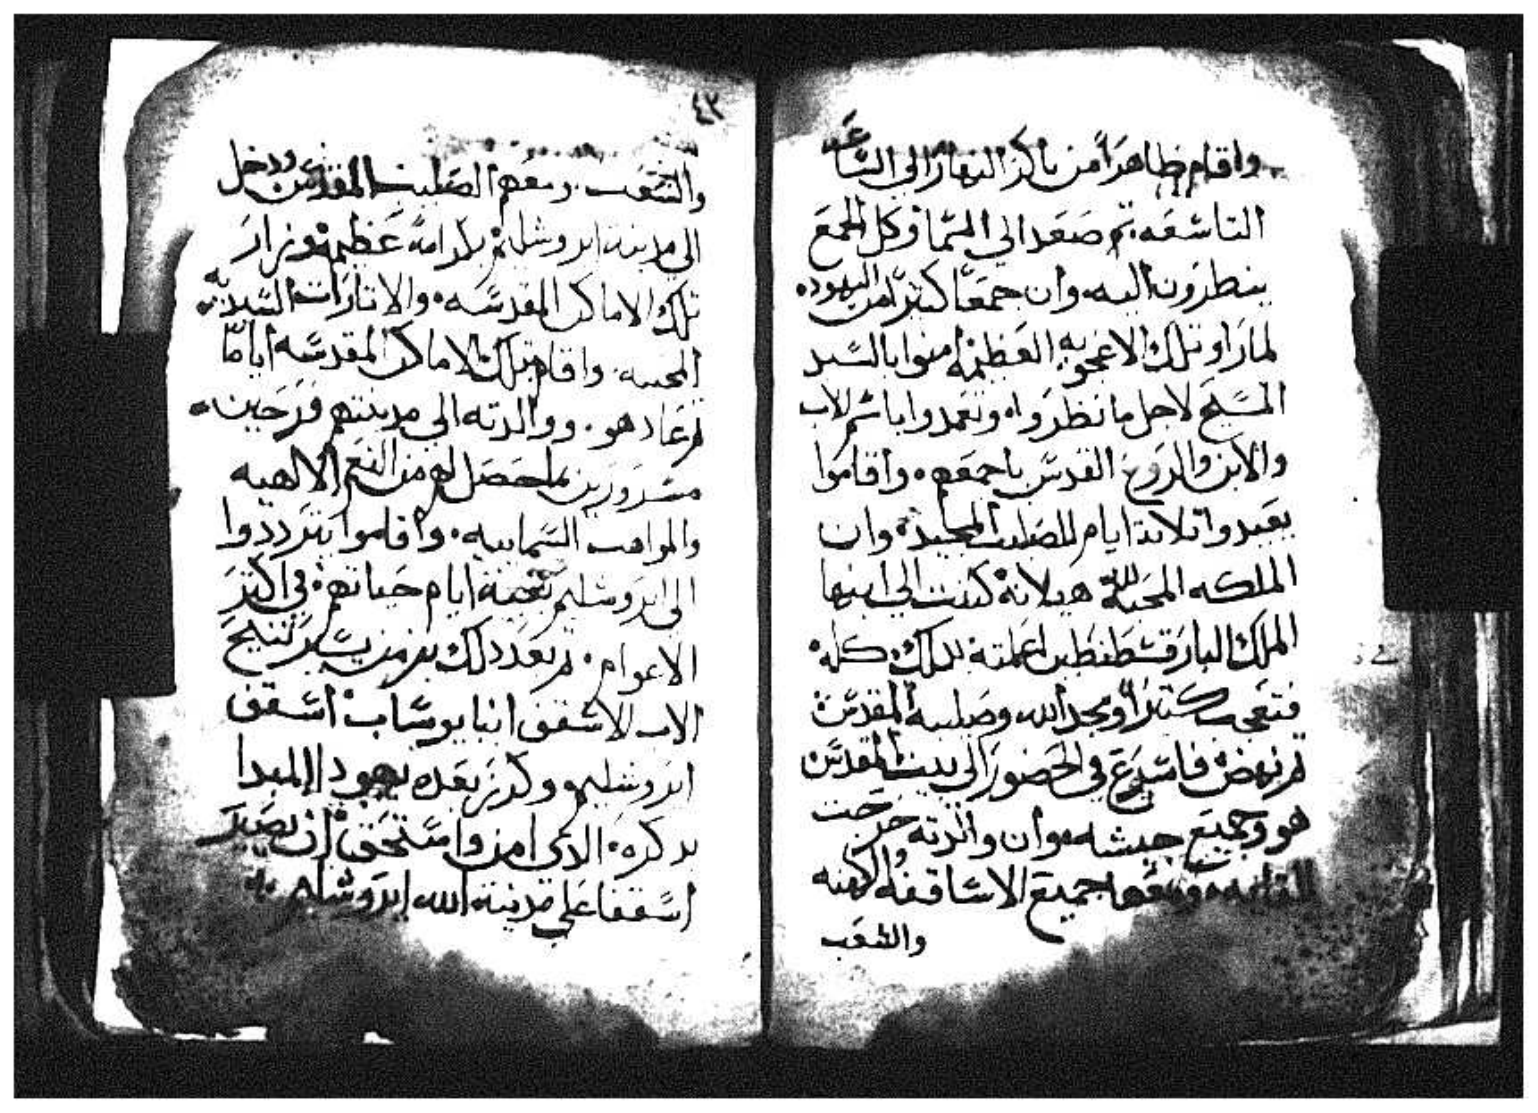 واقام ظاهرا من باكر النهار الى الساعه
التاسعه ثم صعد الى السما وكل الجمع
ينظرون اليه وان جمعا كثيرا من اليهود
لما راو تلك الاعجوبه العظيمه امنوا بالسيد
المسيح لاجل ما نظرواه وتعمدوا باسم الاب
والابن والروح القدس باجمعهم واقاموا
يعيدوا ثلاثة ايام للصليب المجيد وان
الملكه المحبه لله هيلانة كتبت الى ابنها
الملك البار قسطنطين اعلمته بذلك كله
فتعجب كثيرا ومجد الله وصليبه المقدس
ثم نهض فاسرع في الحضور الى بيت المقدس
هو وجميع جيشه وان والدته خرجت
للقايه ومعها جميع الاساقفه والكهنه
والشعب
٤٣
والشعب ومعهم الصليب المقدس ودخل
الى مدينة ايروشليم بكرامة عظيمة وزار
تلك الاماكن المقدسه والاثارات السيديه
المحييه واقام بتلك الاماكن المقدسه اياما
ثم عاد هو ووالدته الى مدينتهم فرحين
مسرورين بما حصل لهم من النعم الالاهيه
والمواهب السماييه واقاموا يترددوا
الى ايروشليم بقية ايام حياتهم في اكثر
الاعوام ثم بعد ذلك بزمن يسير تنيح
الاب الاسقف انبا يوساب اسقف
ايروشليم وكرز بعده يهودا المبدا
بذكره الذي امن واستحق ان يصير
اسقفا على مدينة الله ايروشليم